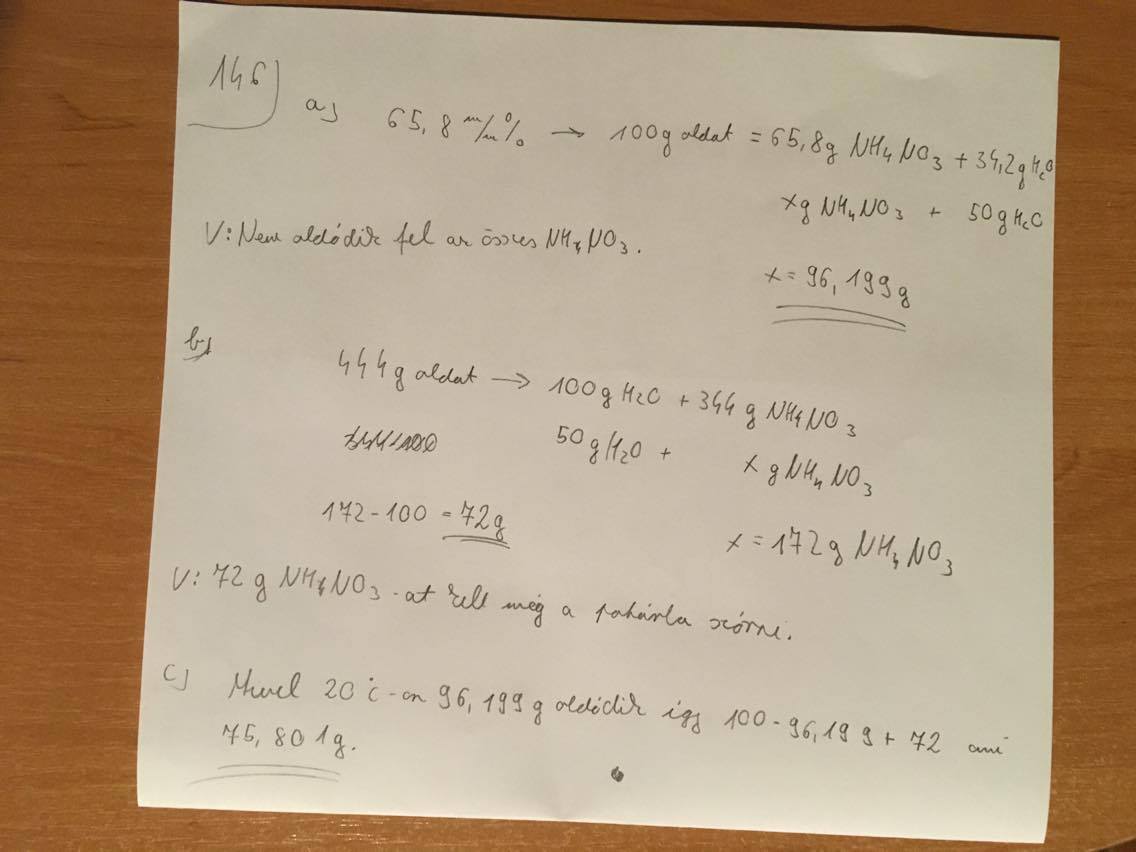 146)
a) 65,8 m/m% → 100g oldat = 65,8g NH4NO3 + 34,2g H2O
xg NH4NO3 + 50g H2O
V: Nem oldódik fel az összes NH4NO3.
x = 96,199g
b)
444g oldat → 100g H2O + 344g NH4NO3
50g H2O + x g NH4NO3
172 - 100 = 72g
x = 172g NH4NO3
V: 72g NH4NO3-at kell még a pohárba szórni.
c) Mivel 20°C-on 96,199g oldódik így 100 - 96,199 + 72 ami
75,801g.